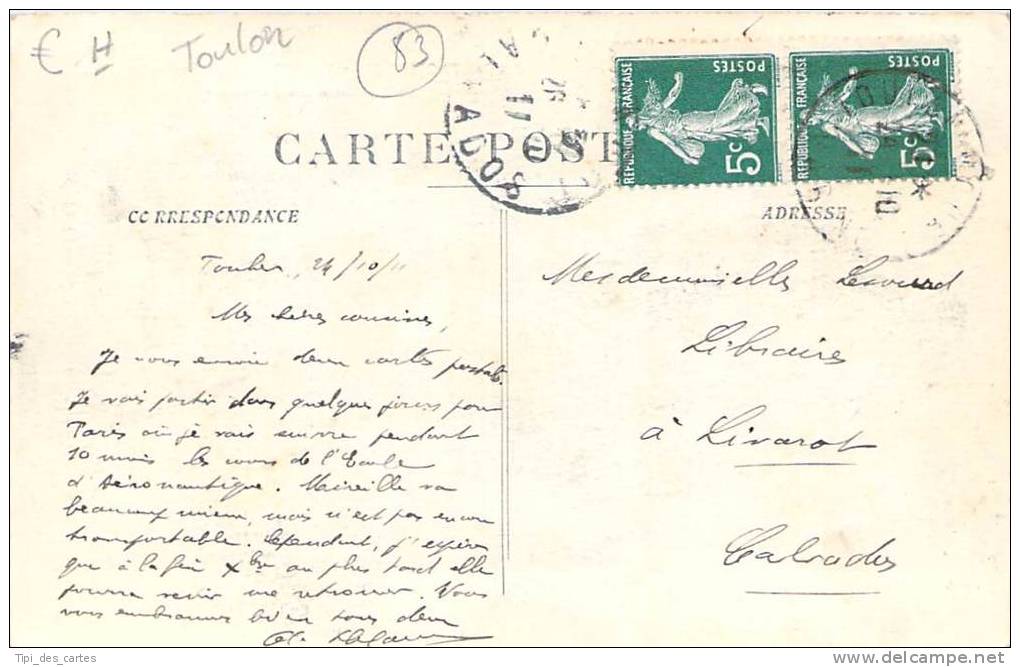 € H Toulon 83
CARTE POST
RÉPUBLIQUE FRANÇAISE POSTES 5c
RÉPUBLIQUE FRANÇAISE POSTES 5c
CALVADOS
CORRESPONDANCE
ADRESSE
Toulon, 24/10/11
Mes chères cousines,
Je vous envoie deux cartes postales.
Je vais partir dans quelques jours pour
Paris où je vais suivre pendant
10 mois les cours de l'Ecole
d'Aéronautique. Mireille va
beaucoup mieux, mais n'est pas encore
transportable. Cependant, j'espère
que à la fin Xbre au plus tard elle
pourra venir me retrouver. Vous
vous embrassons bien tous deux
Mesdemoiselles
Libraires
à Livarot
Calvados
Tipi_des_cartes
www.delcampe.net